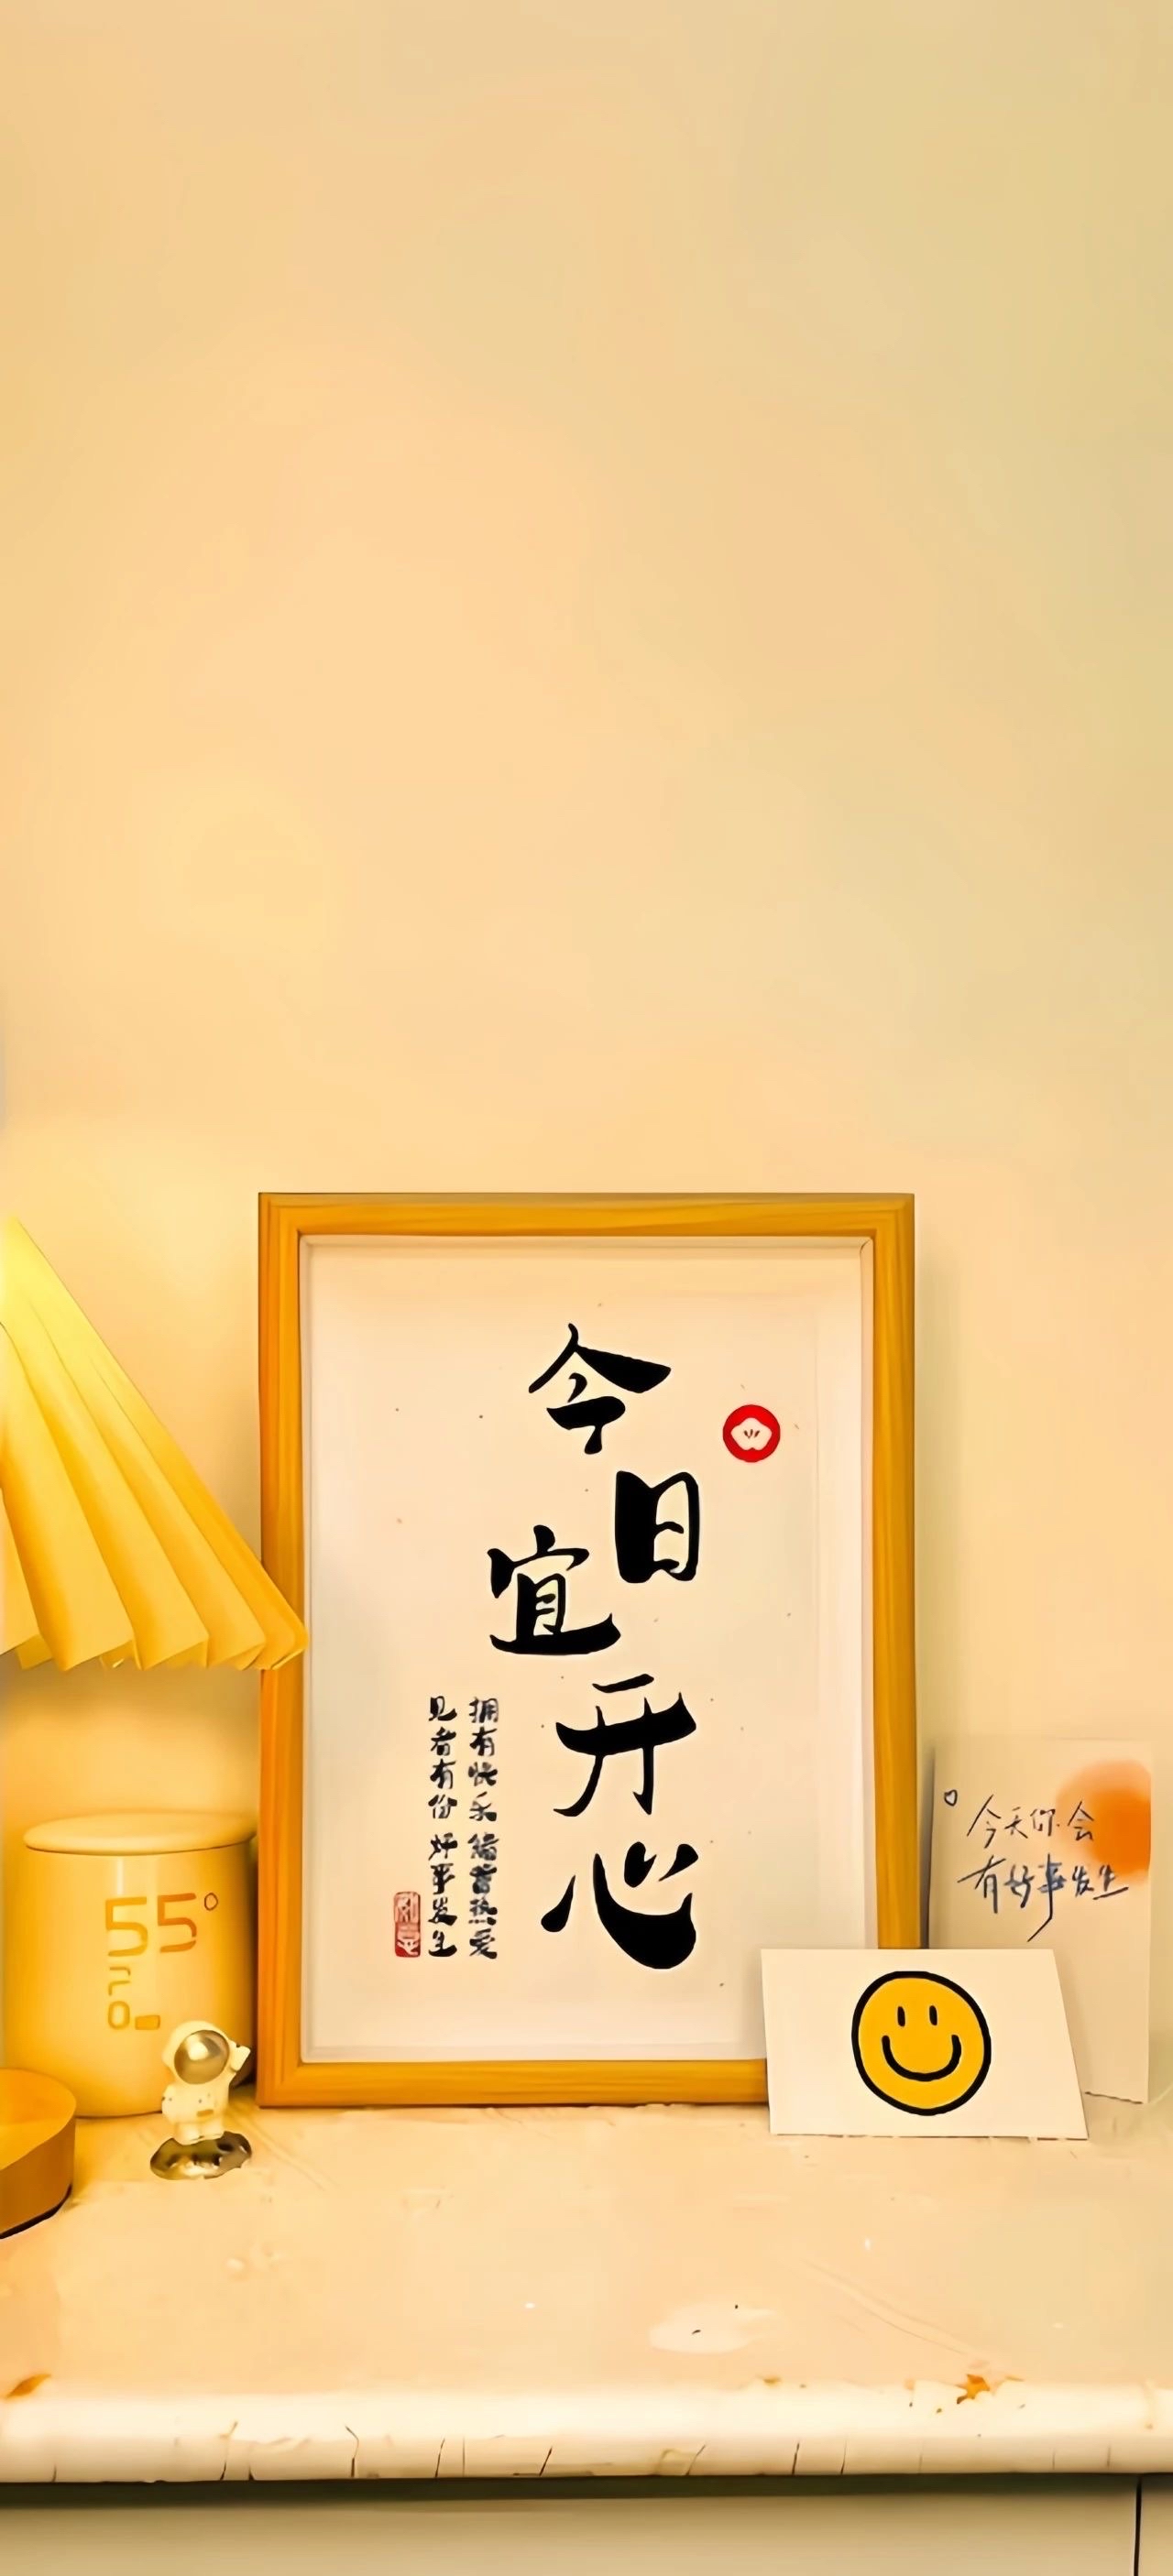 今日宜开心
拥有快乐 储蓄热爱
见者有份 好事发生
今天你会
有好事发生
55°